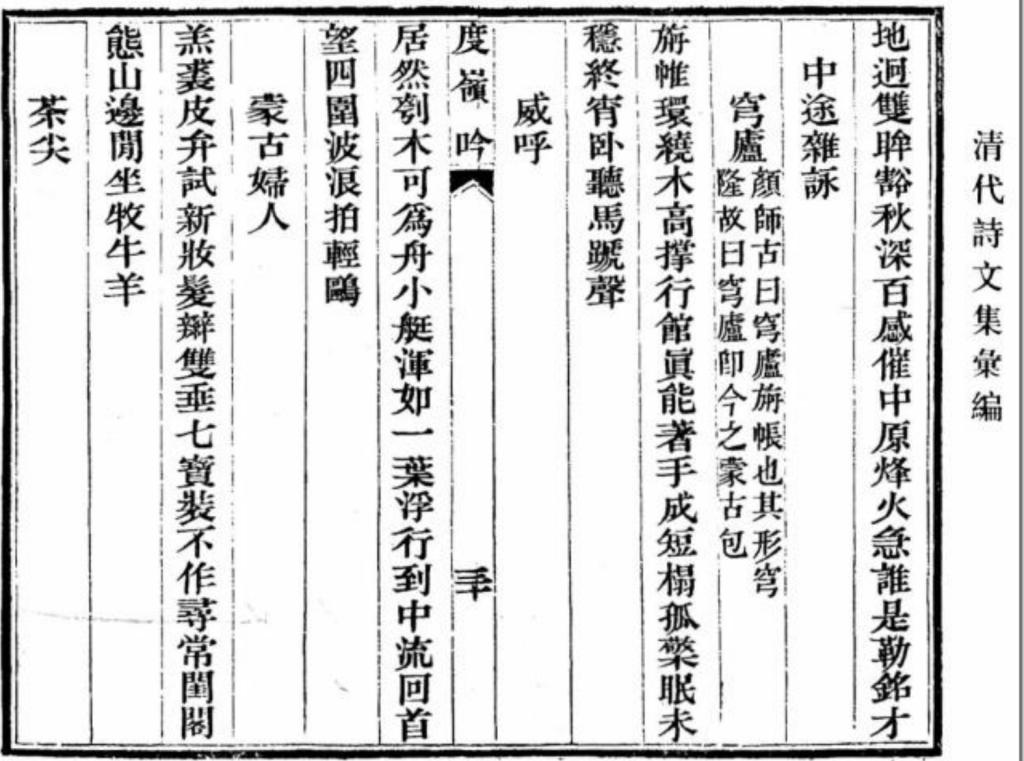 清代詩文集彙編
地迥雙眸豁秋深百感催中原烽火急誰是勒銘才
中途雜詠
穹廬
顏師古曰穹廬旃帳也其形穹
隆故曰穹廬卽今之蒙古包
旃帷環繞木高撐行館眞能著手成短榻孤檠眠未
穩終宵卧聽馬蹏聲
威呼
度嶺吟
三十
居然刳木可爲舟小艇渾如一葉浮行到中流回首
望四圍波浪拍輕鷗
蒙古婦人
羔裘皮弁試新妝髮辮雙垂七寶裝不作尋常閨閣
態山邊閒坐牧牛羊
茶尖